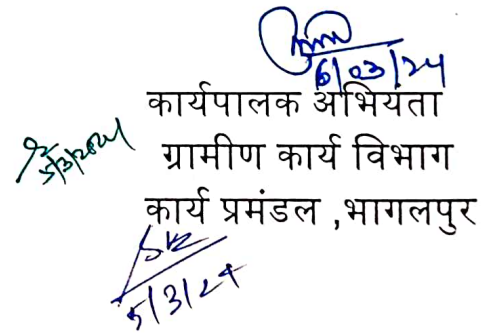 6/03/24
कार्यपालक अभियंता
5/3/2024
ग्रामीण कार्य विभाग
कार्य प्रमंडल ,भागलपुर
5/3/24